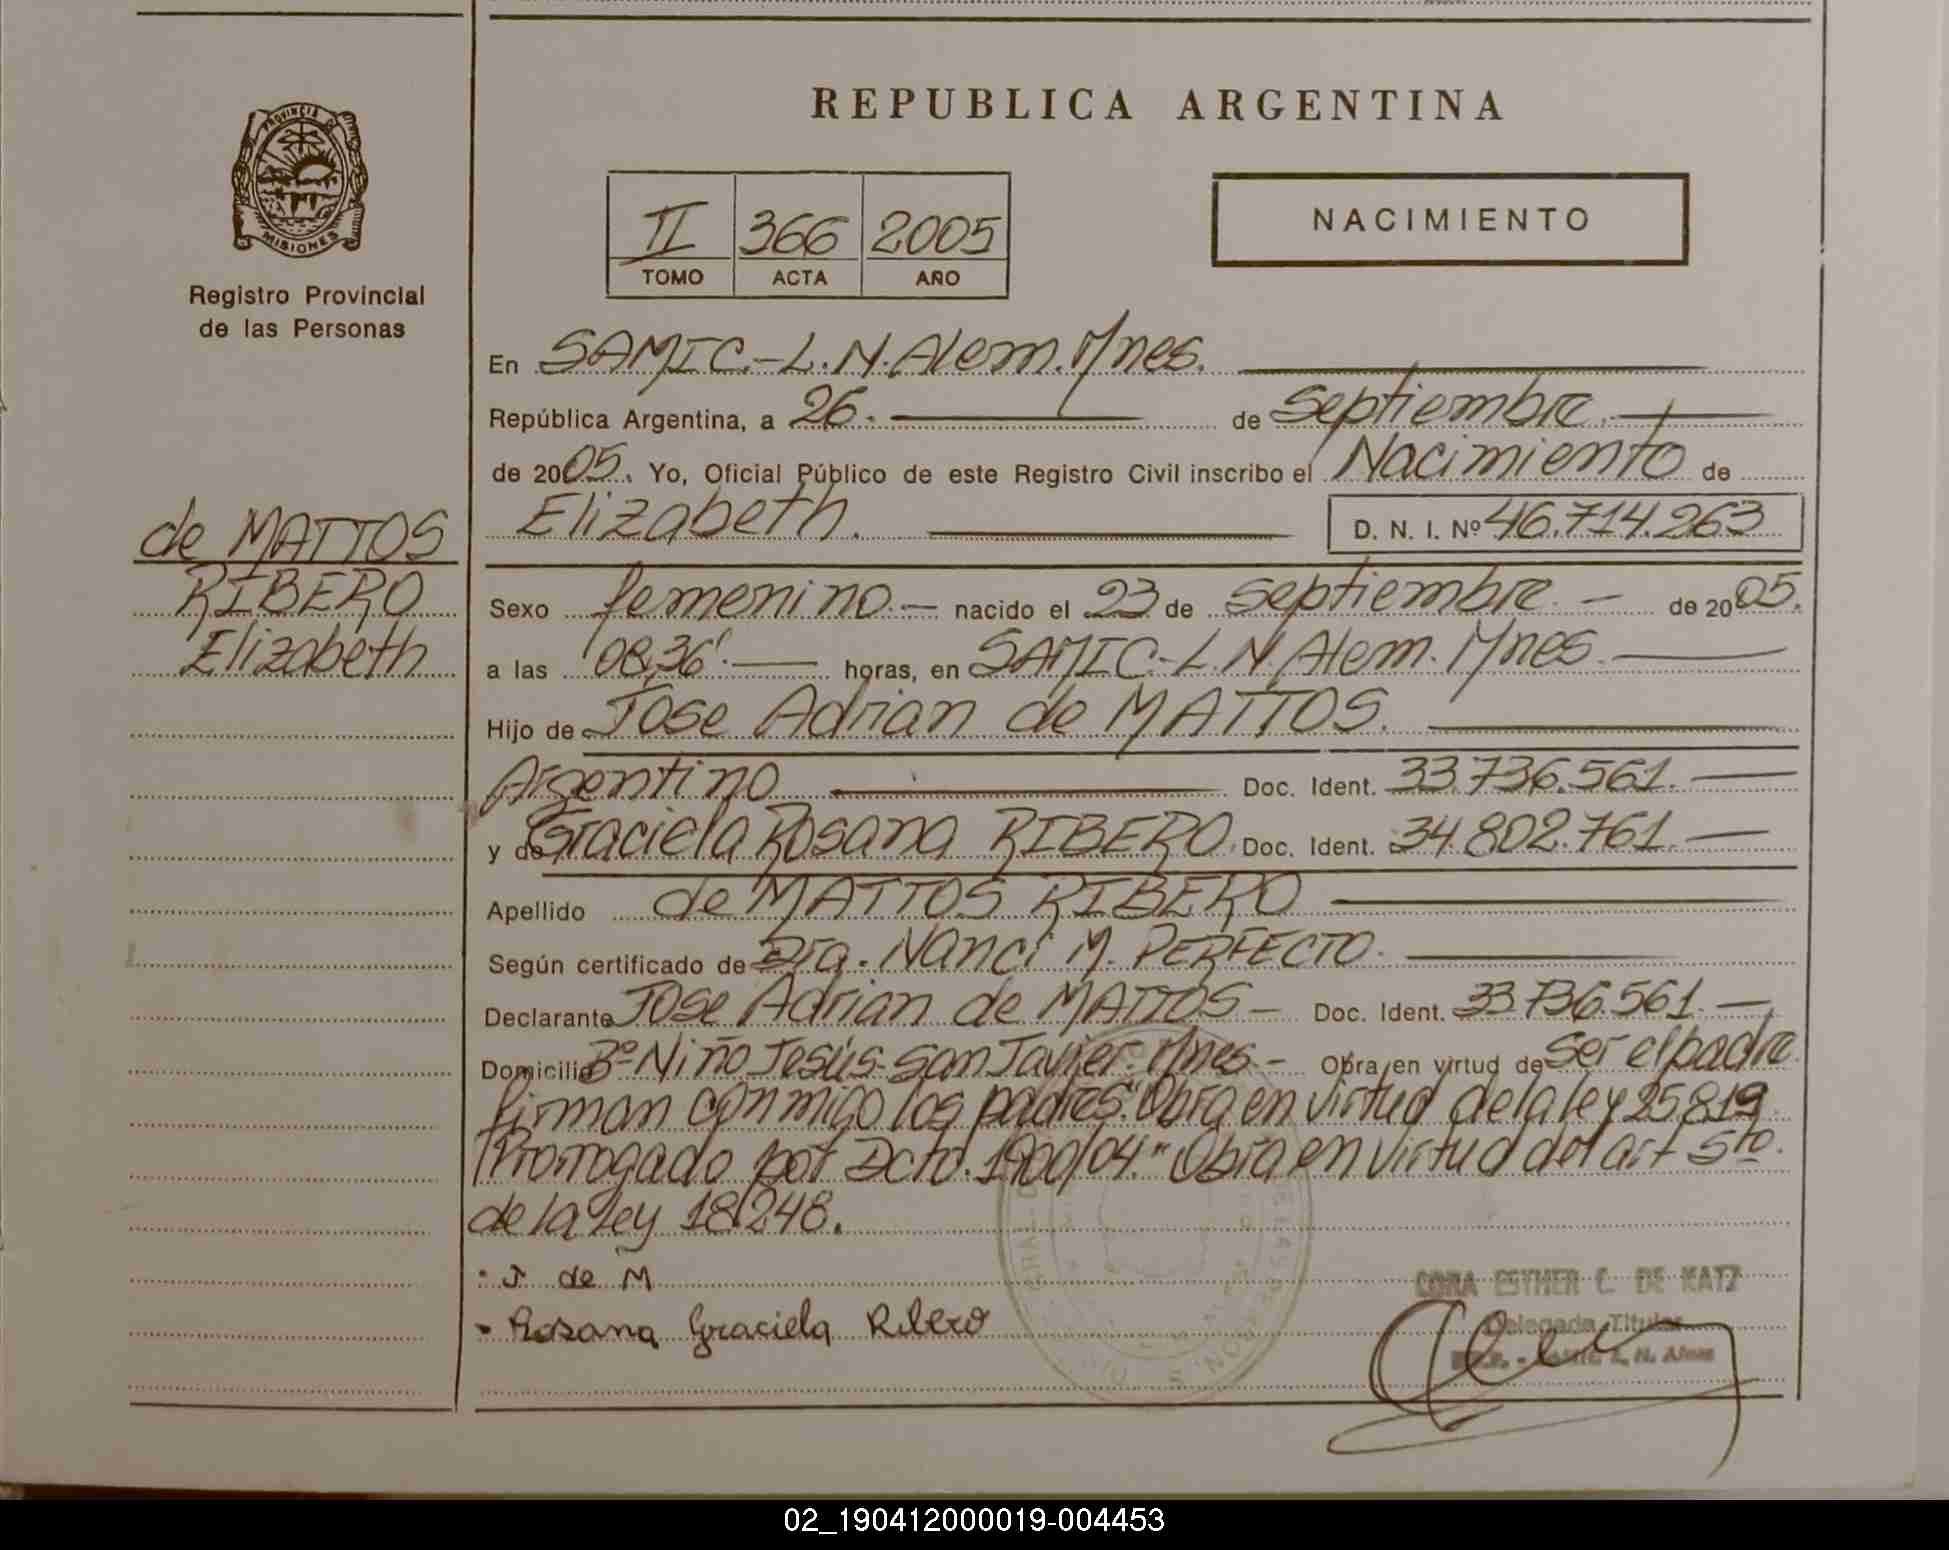 REPUBLICA ARGENTINA
PROVINCIA DE
MISIONES
Registro Provincial
de las Personas
II 366 2005
TOMO ACTA AÑO
NACIMIENTO
de MATTOS
RIBERO
Elizabeth
En SAMIC.-L.N.Alem.Mnes.
República Argentina, a 26. de Septiembre.
de 2005. Yo, Oficial Público de este Registro Civil inscribo el Nacimiento de
Elizabeth. D. N. I. Nº 46.714.263
Sexo femenino.- nacido el 23 de Septiembre. - de 2005.
a las 08,36'. horas, en SAMIC.-L.N.Alem.Mnes.
Hijo de Jose Adrian de MATTOS.
Argentino Doc. Ident. 33.736.561.
y de Graciela Rosana RIBERO. Doc. Ident. 34.802.761.
Apellido de MATTOS RIBERO
Según certificado de Dra. Nanci M. PERFECTO.
Declarante Jose Adrian de MATTOS- Doc. Ident. 33.736.561.-
Domicilio Bº Niño Jesús-San Javier. Mnes.- Obra en virtud de Ser el padre.
firman conmigo los padres."Obra en virtud de la ley 25.819
Prorrogado por Dcto. 1900/04." Obra en virtud del art 5to.
de la ley 18.248.
J de M
Rosana Graciela Ribero
CORA ESTHER C. DE KATZ
Delegada Titular
L. N. Alem
02_190412000019-004453